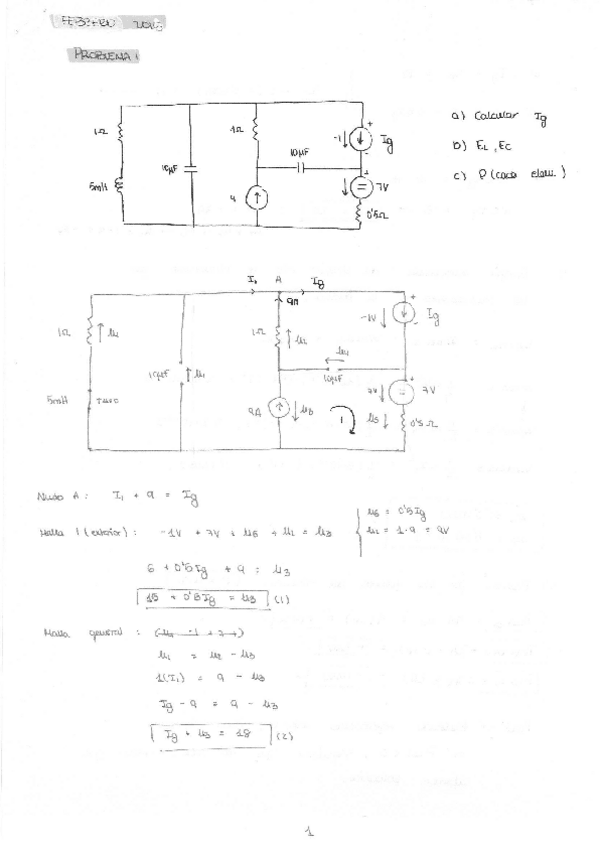 FEBRERO
PROBLEMA 1
1Ω
10μF
1Ω
10μF
-1
Ig
5mH
4
7V
0'5Ω
a) Calcular Ig
b) EL, EC
c) P (cada elem.)
I1
A
Ig
9A
1Ω
u1
10μF
u1
1Ω
u2
10μF
-1V
Ig
5mH
9A
u3
1
7V
u5
0'5Ω
Nudo A: I1 + 9 = Ig
Malla 1 (exterior): -1V + 7V + u5 + u2 = u3
u5 = 0'5Ig
u2 = 1·9 = 9V
6 + 0'5Ig + 9 = u3
15 + 0'5Ig = u3 (1)
Malla general:
u1 = u2 - u3
1(I1) = 9 - u3
Ig - 9 = 9 - u3
Ig + u3 = 18 (2)
1